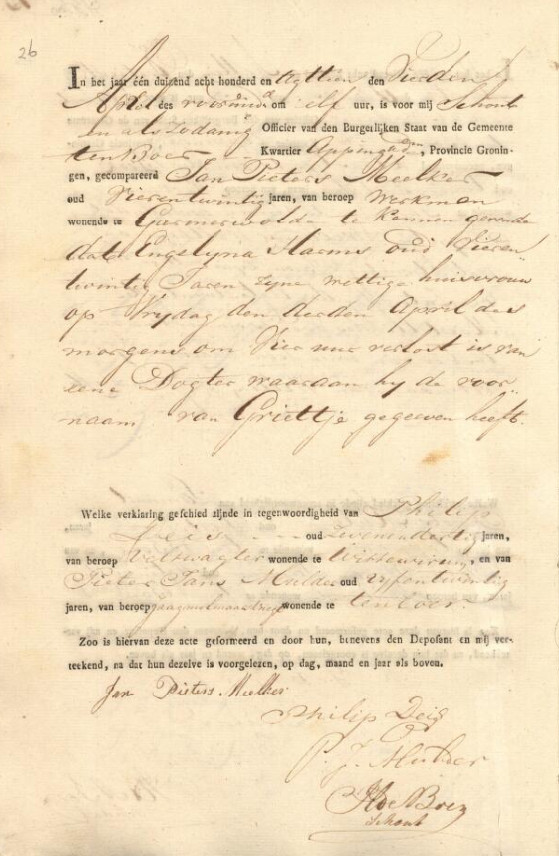 26
In het jaar één duizend acht honderd en Agttien den Vierden
April des voormid^d om elf uur, is voor mij Schout
en als zodanig Officier van den Burgerlijken Staat van de Gemeente
ten Boer Kwartier Appingedam, Provincie Gronin-
gen, gecompareerd Jan Pieters Meelker
oud Vierentwintig jaren, van beroep Werkman
wonende te Garmerwolde te kennen gevende
dat Engelyna Harms oud Vieren
twintig Jaren zyne wettige huisvrouw
op Vrydag den derden April des
morgens om Vier uur verlost is van
eene Dogter waaraan hy de voor-
naam van Grietje gegeeven heeft.
Welke verklaring geschied zijnde in tegenwoordigheid van Philip
Deis oud Zevenendertig jaren,
van beroep Veldwagter wonende te Wittewirum, en van
Pieter Jans Mulder oud Vyfentwintig
jaren, van beroep wonende te ten boer
Zoo is hiervan deze acte geformeerd en door hun, benevens den Deposant en mij ver-
teekend, na dat hun dezelve is voorgelezen, op dag, maand en jaar als boven.
Jan Pieters Meelker
Philip Deis
P. J. Mulder
Schout